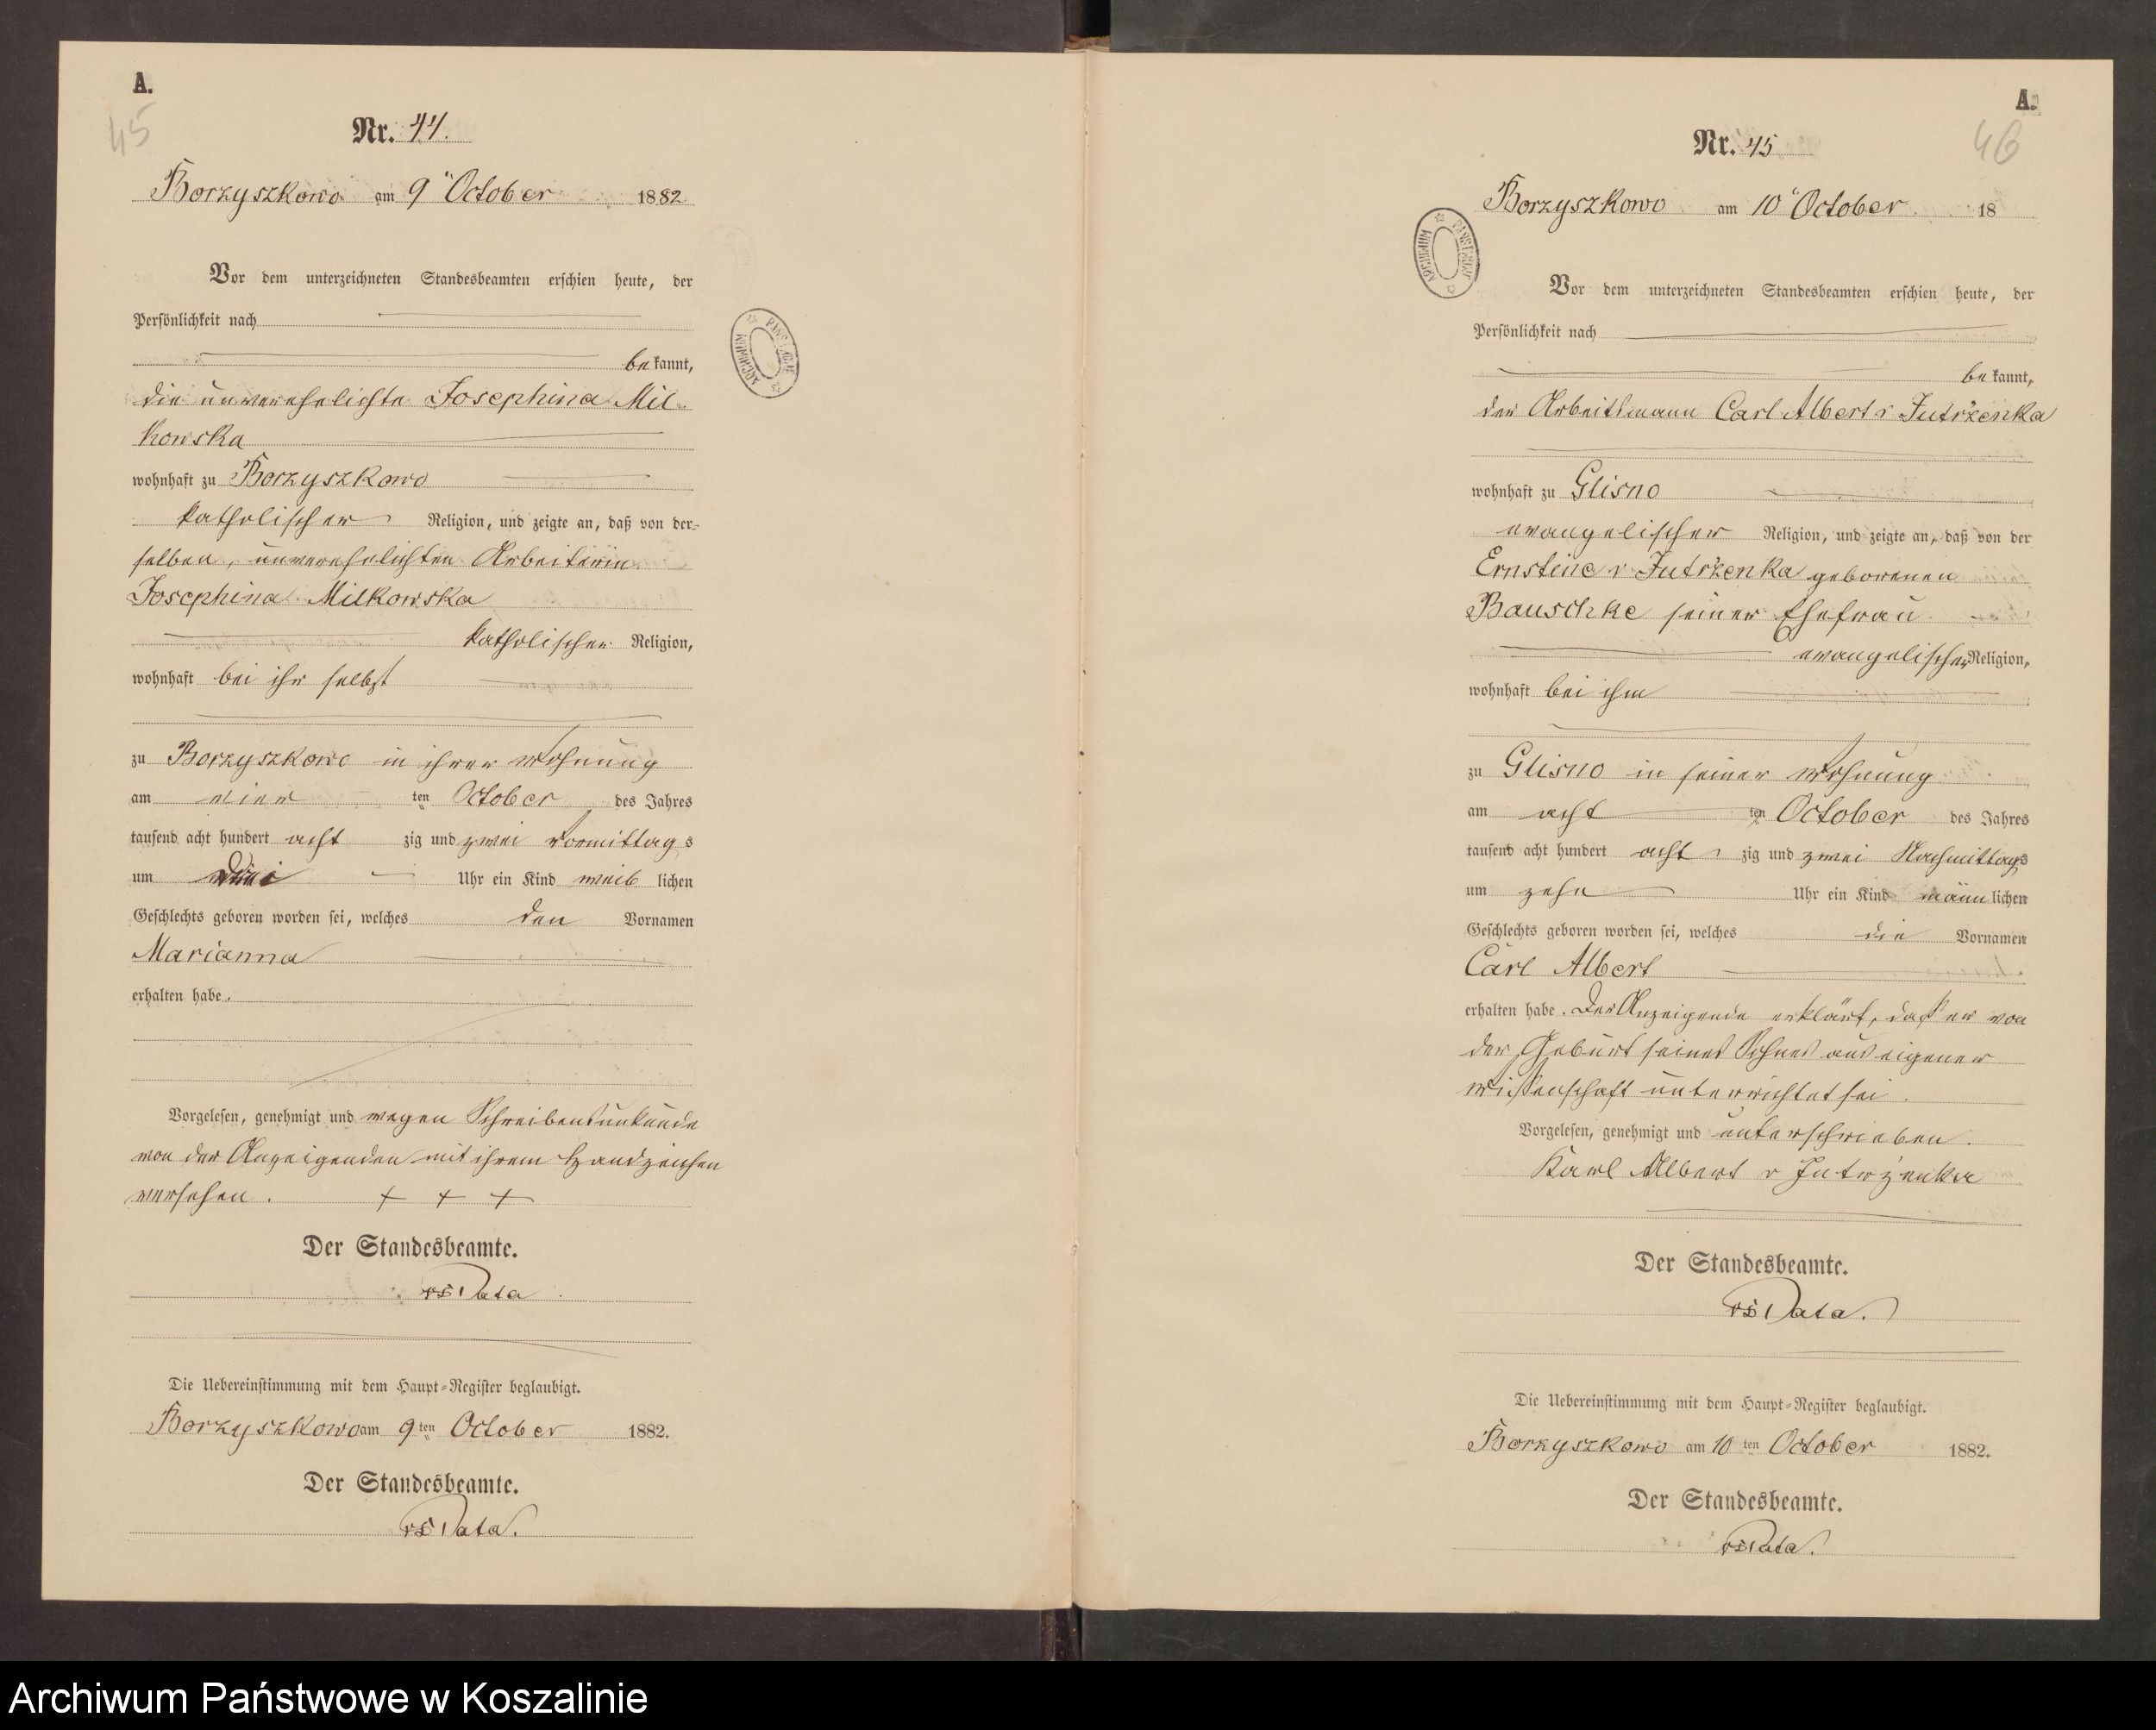 A.
45
Nr. 44.
Borzyszkowo am 9" October 1882
Vor dem unterzeichneten Standesbeamten erschien heute, der
Persönlichkeit nach
bekannt,
die unverehelichte Josephina Mil-
kowska
wohnhaft zu Borzyszkowo
katholischer Religion, und zeigte an, daß von der-
selben, unverehelichten Arbeiterin
Josephina Milkowska
katholischer Religion,
wohnhaft bei ihr selbst
zu Borzyszkowo in ihrer Wohnung
am vier ten October des Jahres
tausend acht hundert acht zig und zwei Vormittags
um Uhr ein Kind weib lichen
Geschlechts geboren worden sei, welches den Vornamen
Marianna
erhalten habe.
Vorgelesen, genehmigt und wegen Schreibensunkunde
von der Anzeigenden mit ihrem Handzeichen
versehen. + + +
Der Standesbeamte.
Data
Die Uebereinstimmung mit dem Haupt-Register beglaubigt.
Borzyszkowo am 9ten October 1882.
Der Standesbeamte.
Data.
A.
46
Nr. 45
Borzyszkowo am 10" October 18
ARCHIWUM PAŃSTWOWE
Vor dem unterzeichneten Standesbeamten erschien heute, der
Persönlichkeit nach
bekannt,
der Arbeitsmann Carl Albert v Jutrżenka
wohnhaft zu Glisno
evangelischer Religion, und zeigte an, daß von der
Ernstine v Jutrżenka geborenen
Bauschke seiner Ehefrau
evangelischer Religion,
wohnhaft bei ihm
zu Glisno in seiner Wohnung
am acht ten October des Jahres
tausend acht hundert acht zig und zwei Nachmittags
um zehn Uhr ein Kind männ lichen
Geschlechts geboren worden sei, welches die Vornamen
Carl Albert
erhalten habe. Der Anzeigende erklärt, daß er von
der Geburt seines Sohnes aus eigener
Wißenschaft unterrichtet sei.
Vorgelesen, genehmigt und unterschrieben.
Karl Albert v Jutrżenka
Der Standesbeamte.
Data.
Die Uebereinstimmung mit dem Haupt-Register beglaubigt.
Borzyszkowo am 10 ten October 1882.
Der Standesbeamte.
Data.
ARCHIWUM PAŃSTWOWE
Archiwum Państwowe w Koszalinie